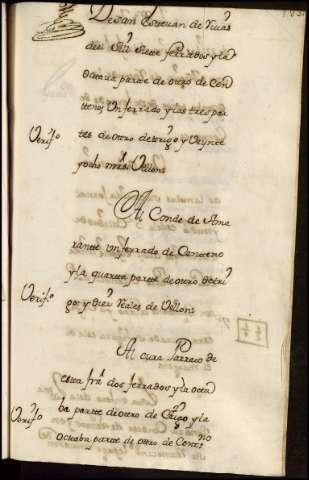 De San Esteuan de Riuas
de
Siete ferrados y la
Octaua parte de otro de Cen
teno Un ferrado y las tres par
tes de otro de trigo y Veynte
Verifo
yocho mrs Vellon
Al Conde de Ama
rante Un ferrado de Centeno
y la quarta parte de otro de tri
Verifo
go y diez Reales de Vellon
Al cura Parraco de
esta fra dos ferrados y la octa
ba parte de otro de trigo y la
Verifo
Octaba parte de otro de Cente
no